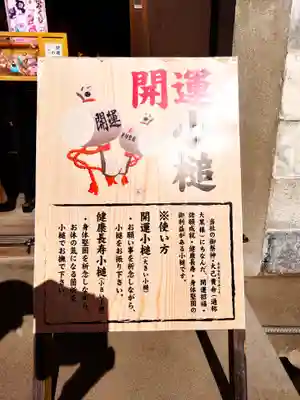 開運
小槌
開運
当社の御祭神・大己貴命(通称
大黒様)にちなんだ、開運招福・
諸願成就・健康長寿・身体堅固の
御利益がある小槌です。
※使い方
開運小槌(大きい小槌)
・お願い事を祈念しながら、
小槌をお振り下さい。
健康長寿小槌(小さい小槌)
・身体堅固を祈念しながら、
お体の気になる箇所を
小槌でお撫で下さい。